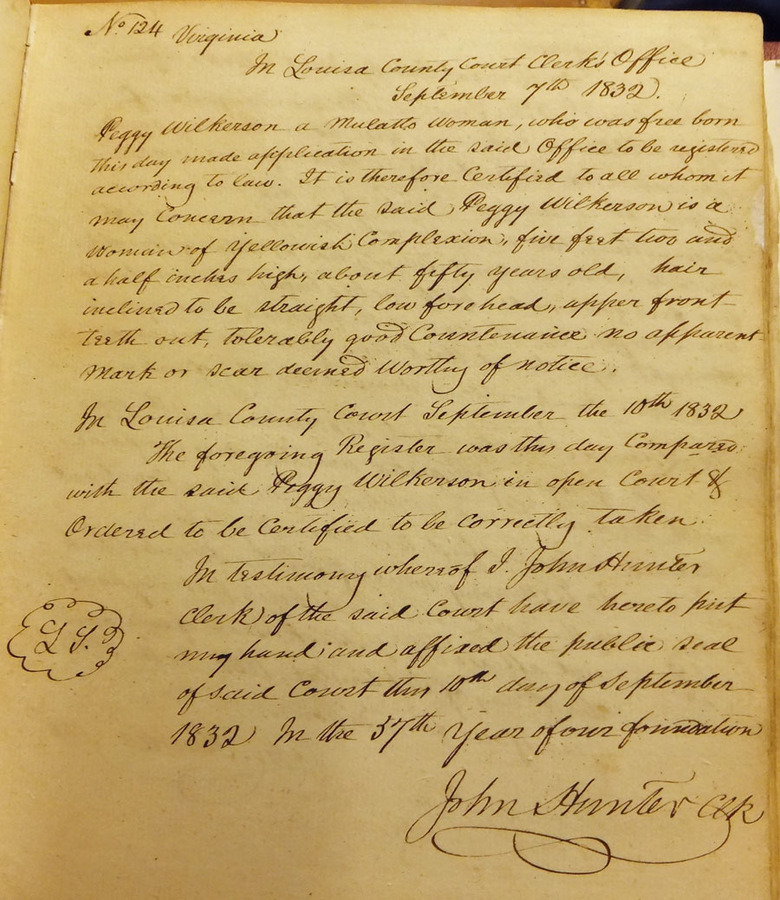 No 124 Virginia
In Louisa County Court Clerk's Office
September 7th 1832.
Peggy Wilkerson a Mulatto Woman, who was free born
this day made application in the said Office to be registered
according to law. It is therefore Certified to all whom it
may Concern that the said Peggy Wilkerson is a
Woman of Yellowish Complexion, five feet two and
a half inches high, about fifty years old, hair
inclined to be straight, low forehead, upper front
teeth out, tolerably good Countenance no apparent
mark or scar deemed Worthy of notice.
In Louisa County Court September the 10th 1832
The foregoing Register was this day Compared
with the said Peggy Wilkerson in open Court &
Ordered to be Certified to be correctly taken.
In testimony whereof I, John Hunter
Clerk of the said Court have hereto put
my hand and affixed the public seal
of said Court this 10th day of September
1832 In the 57th Year of our foundation
L S.
John Hunter Clk